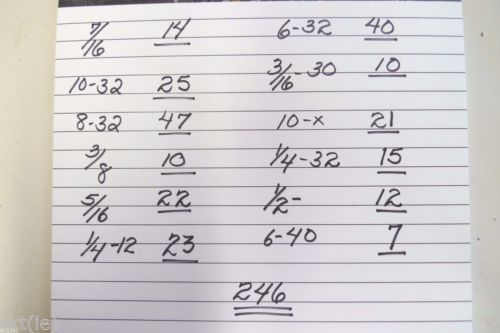 7/16 14 6-32 40
10-32 25 3/16-30 10
8-32 47 10-x 21
3/8 10 1/4-32 15
5/16 22 1/2- 12
1/4-12 23 6-40 7
246